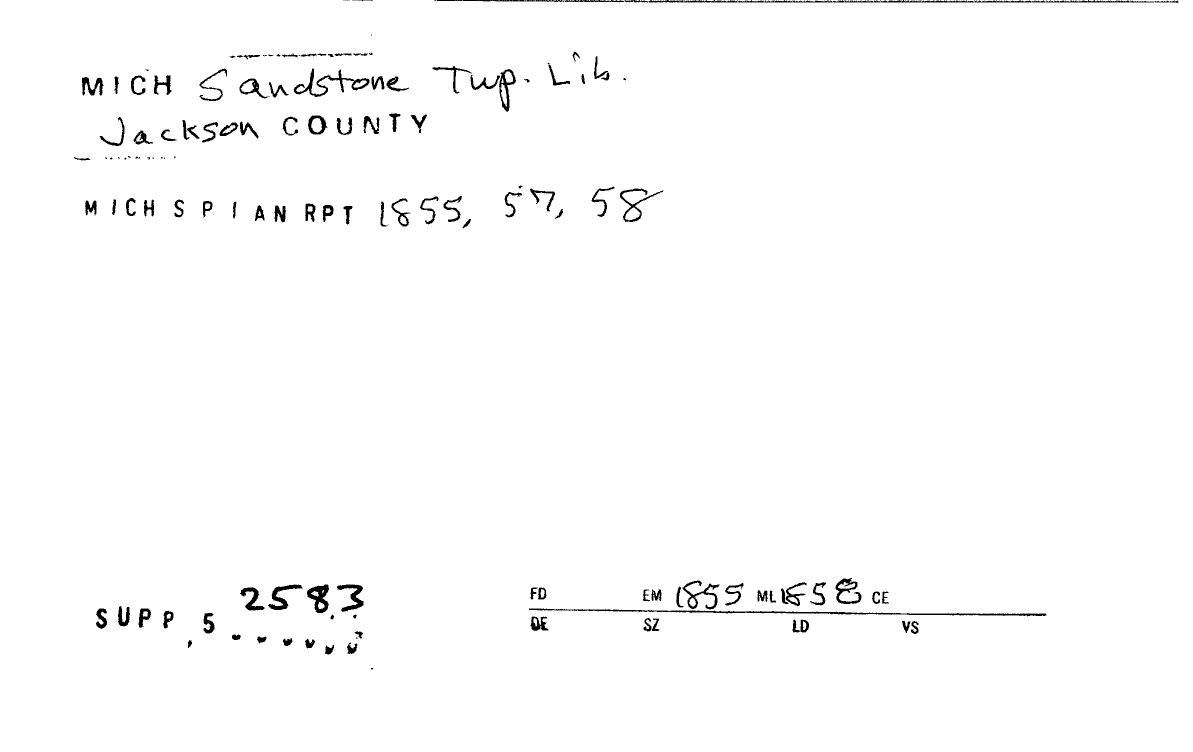 MICH Sandstone Twp. Lib.
Jackson COUNTY
MICH S P I AN RPT 1855, 57, 58
SUPP. 5 2583
FD EM 1855 ML 1858 CE
DE SZ LD VS